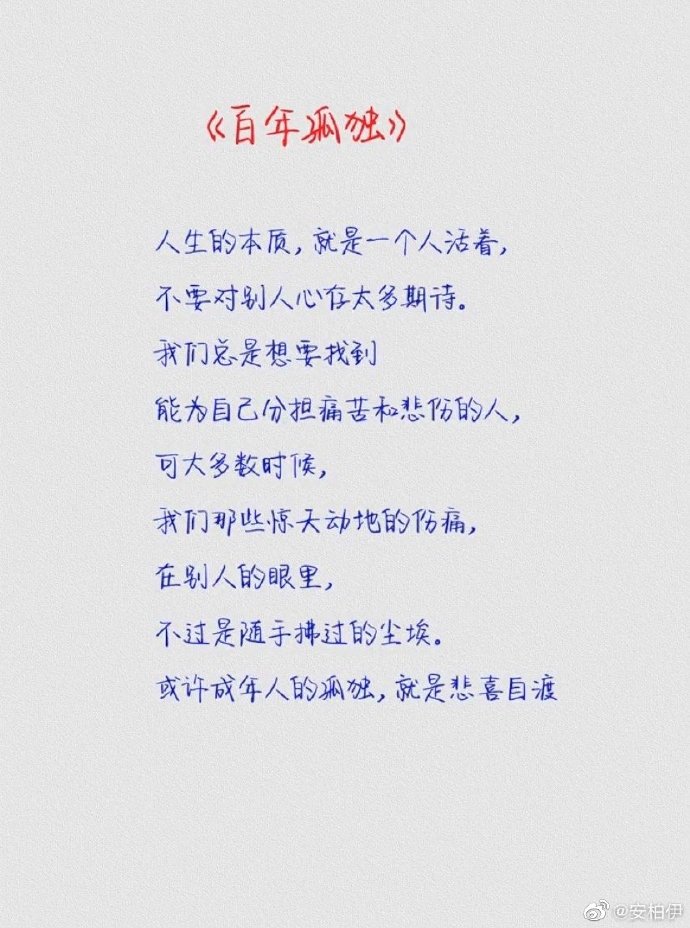 《百年孤独》
人生的本质，就是一个人活着，
不要对别人心存太多期待。
我们总是想要找到
能为自己分担痛苦和悲伤的人，
可大多数时候，
我们那些惊天动地的伤痛，
在别人的眼里，
不过是随手拂过的尘埃。
或许成年人的孤独，就是悲喜自渡
@安柏伊